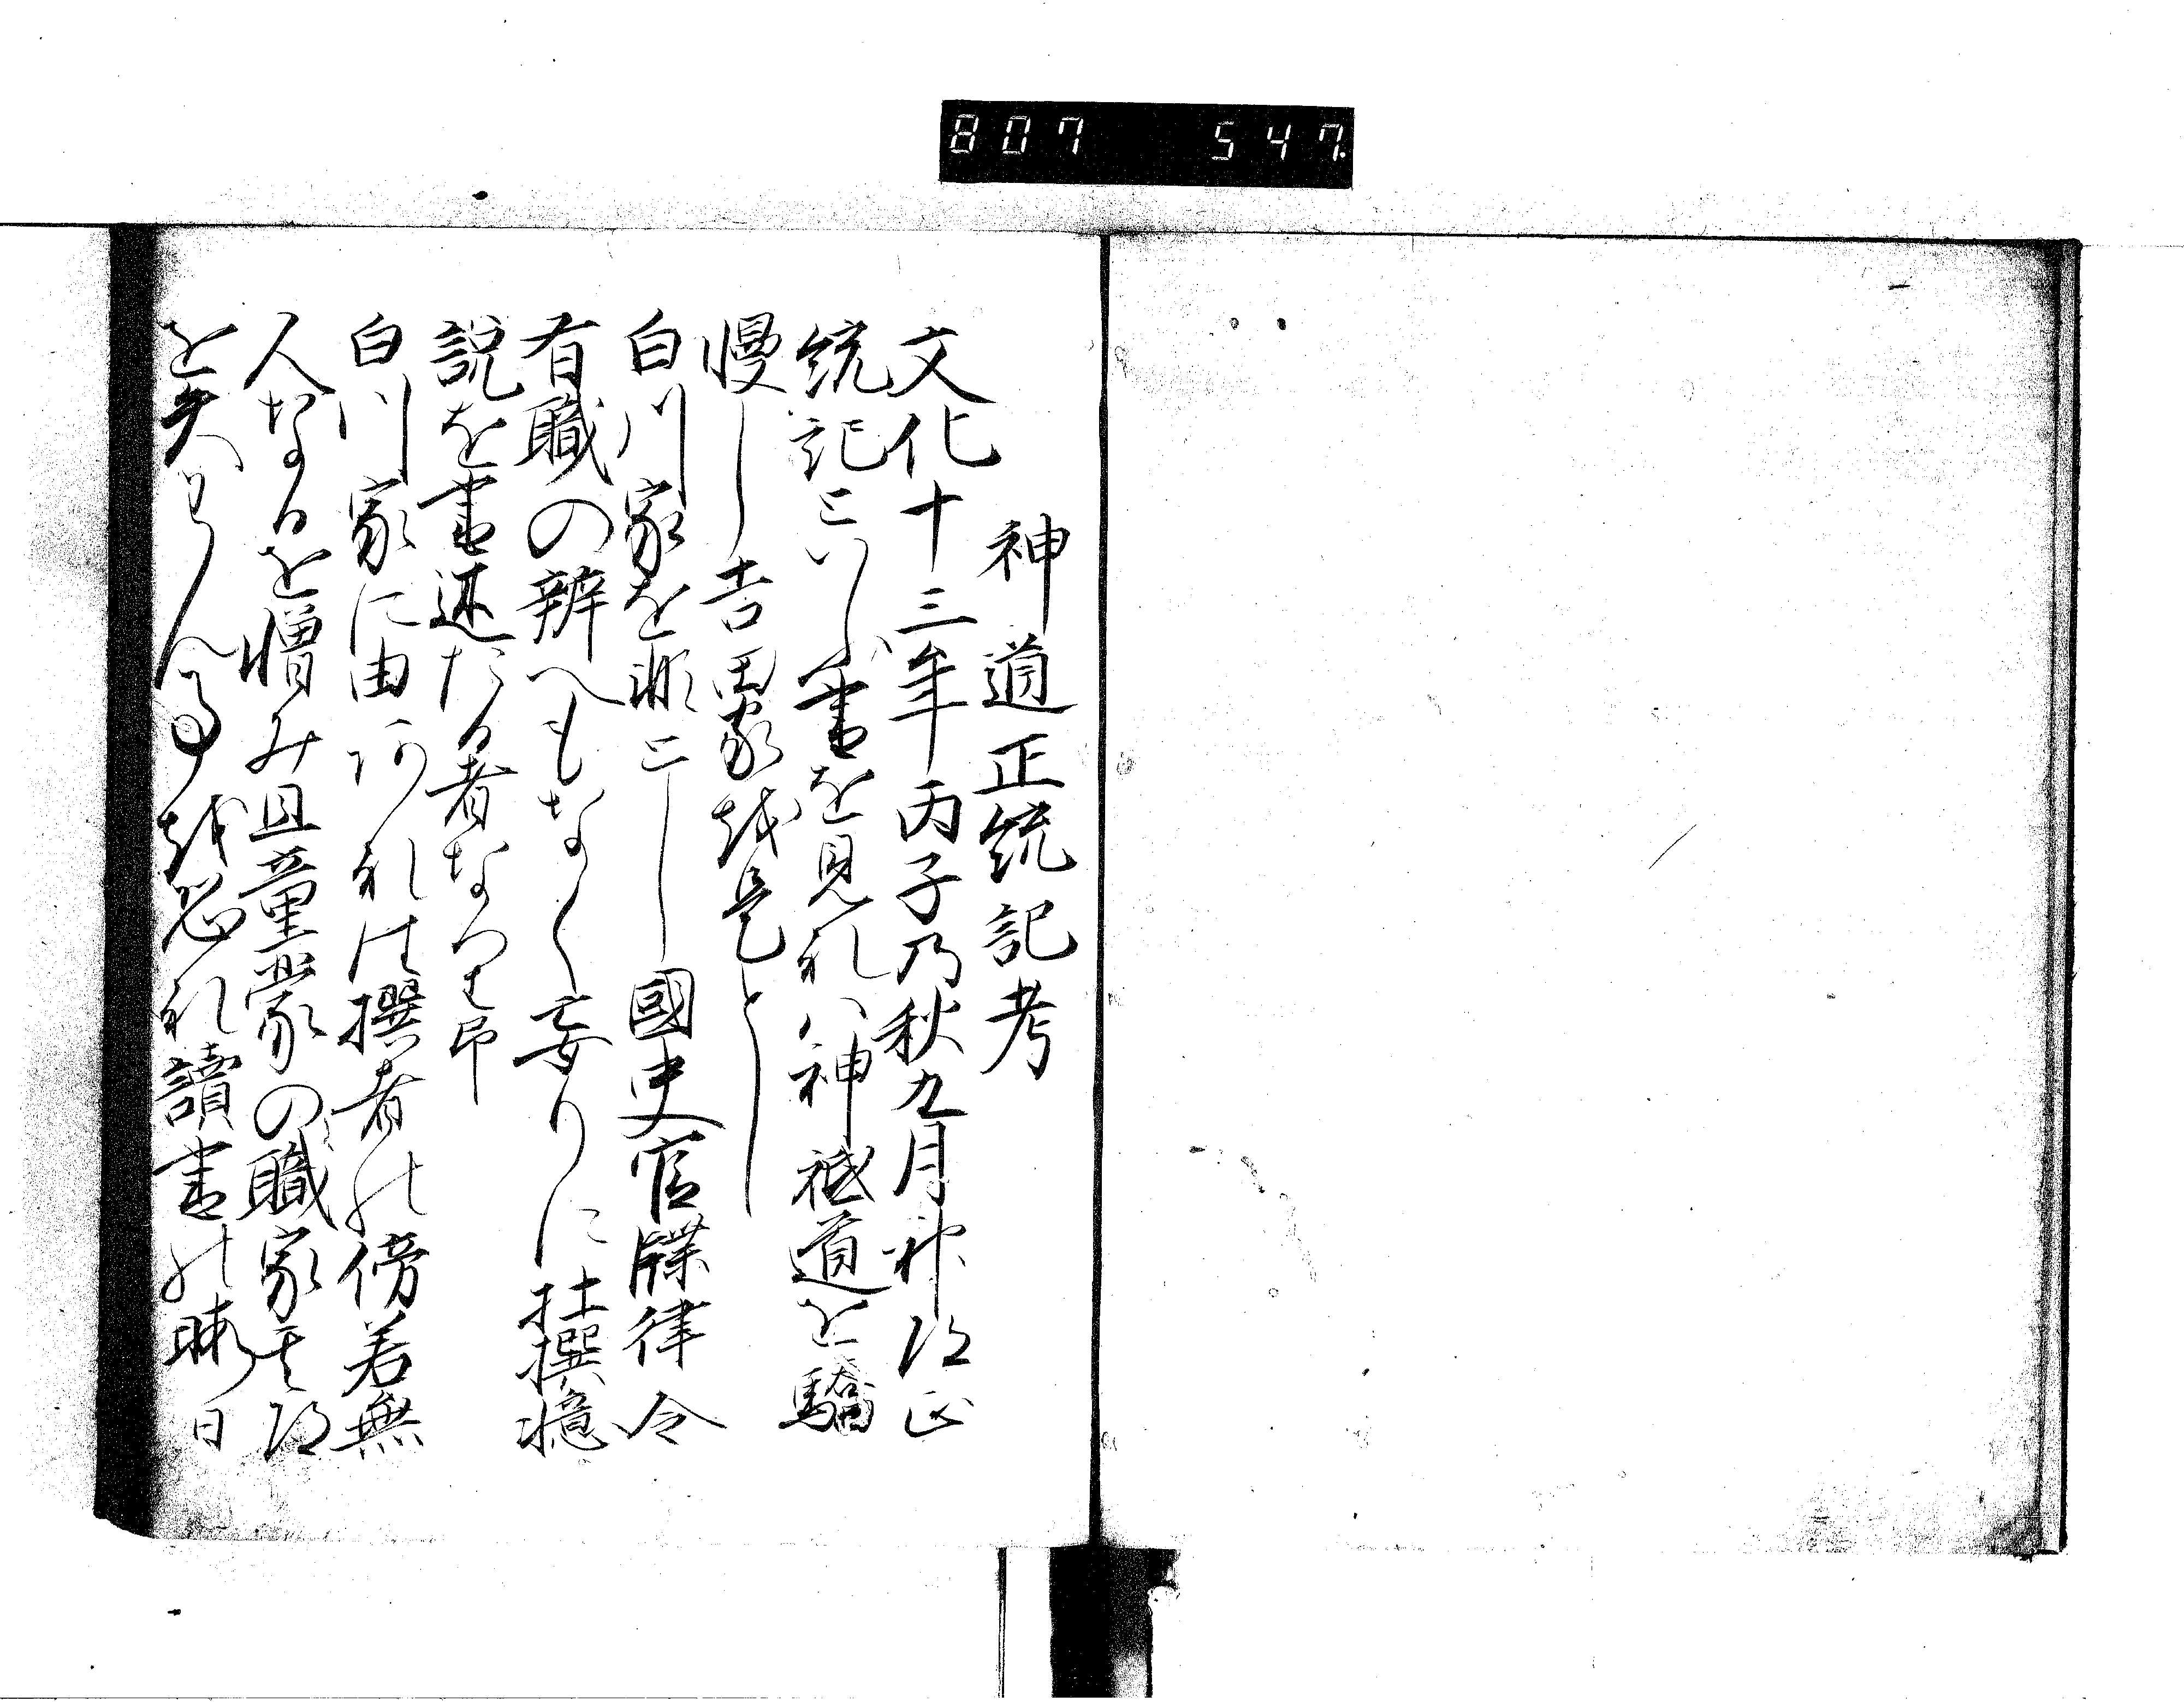 807 547
神道正統記考
文化十三年丙子乃秋九月神道正
統記といふ書を見れハ神祇道を驕
慢し吉田家越是とし
白川家を非とし國史官牒律令
有職の辨へもなく妄りに杜撰憶
説を書述たる者なり
白川家に由阿れは撰者の傍若無
人なるを憎み且童蒙の職家其道
を失はん事越恐れ讀書の暇日